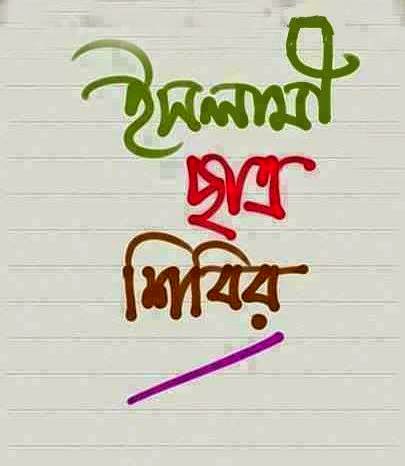 ইসলামী
ছাত্র
শিবির